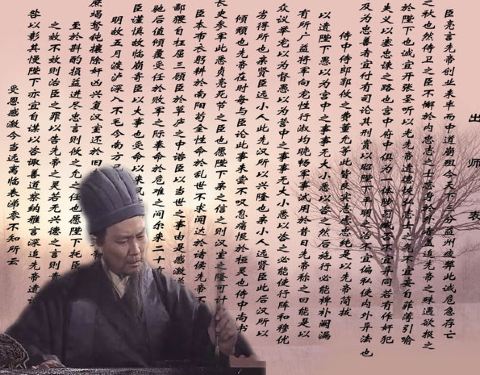 出師表
臣亮言先帝创业未半而中道崩殂今天下三分益州疲弊此诚危急存亡
之秋也然侍卫之臣不懈於内忠志之士忘身於外者盖追先帝之殊遇欲报之
於陛下也诚宜开张圣听以光先帝遗德恢弘志士之气不宜妄自菲薄引喻
失义以塞忠谏之路也宫中府中俱为一体陟罚臧否不宜异同若有作奸犯
及为忠善者宜付有司论其刑赏以昭陛下平明之治不宜偏私使内外异法也
侍中侍郎郭攸之费禕董允等此皆良实志虑忠纯是以先帝简拔
以遗陛下愚以为宫中之事事无大小悉以咨之然后施行必能裨补阙漏
有所广益将军向宠性行淑均晓畅军事试用於昔日先帝称之曰能是以
众议举宠以为督愚以为营中之事事无大小悉以咨之必能使行阵和穆优
劣得所也亲贤臣远小人此先汉所以兴隆也亲小人远贤臣此后汉所以
倾颓也先帝在时每与臣论此事未尝不叹息痛恨於桓灵也侍中尚书
长史参军此悉贞亮死节之臣也愿陛下亲之信之则汉室之隆可计
臣本布衣躬耕於南阳苟全性命於乱世不求闻达於诸侯先帝不
鄙猥自枉屈三顾臣於草庐之中谘臣以当世之事由是感激
驰后值倾覆受任於败军之际奉命於危难之间尔来二十
臣谨慎故临崩寄臣以大事也受命以来
明故五月渡泸深入不毛今南方
庶竭驽钝攘除奸凶兴复汉室还於旧
至於斟酌损益进尽忠言则攸之之任也愿陛下托臣
之效不效则治臣之罪以告先帝之灵若无兴德之言则
咎以彰其慢陛下亦宜自谋以咨诹善道察纳雅言深追先帝遗
受恩感激今当远离临表涕零不知所云